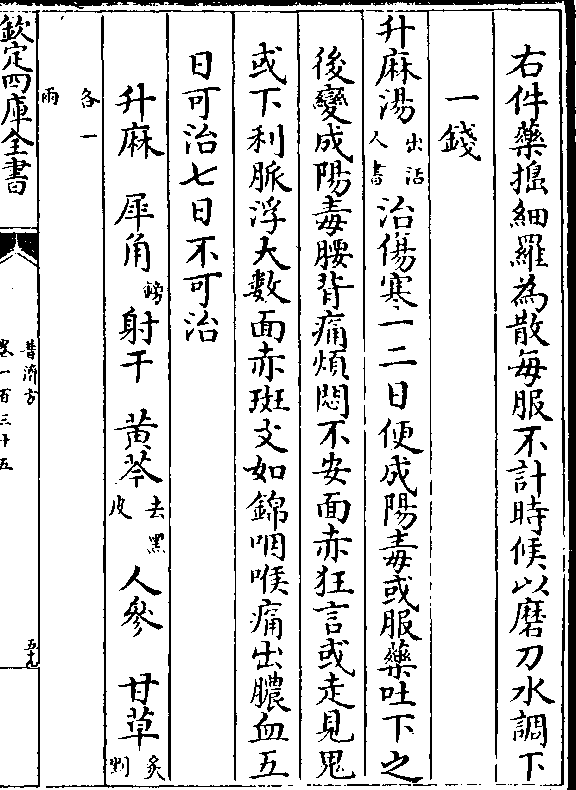 右件藥搗細羅為散每服不計時候以磨刀水調下
一錢
升麻湯出活人書治傷寒一二日便成陽毒或服藥吐下之
後變成陽毒腰背痛煩悶不安面赤狂言或走見鬼
或下利脈浮大數面赤斑文如錦咽喉痛出膿血五
日可治七日不可治
升麻 犀角鎊射干 黃芩去黑皮 人參 甘草炙剉
各一兩
欽定四庫全書
普濟方
卷一百三十五
五十九